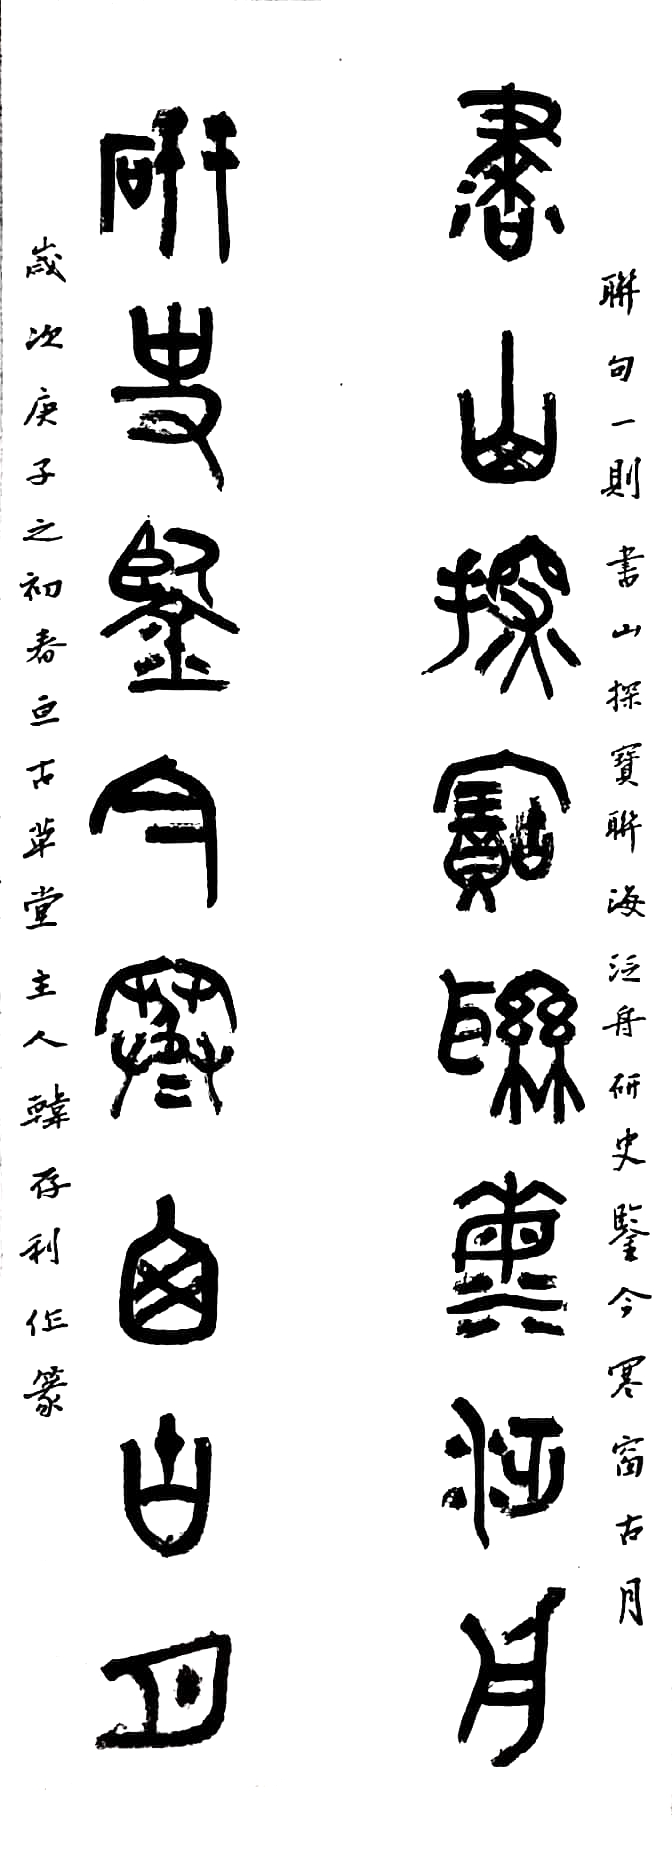 聯句一則書山探寶聯海泛舟研史鑒今寒窗古月
書山探寶聯海泛舟
研史鑒今寒窗古月
歲次庚子之初春亘古草堂主人韓存利作篆